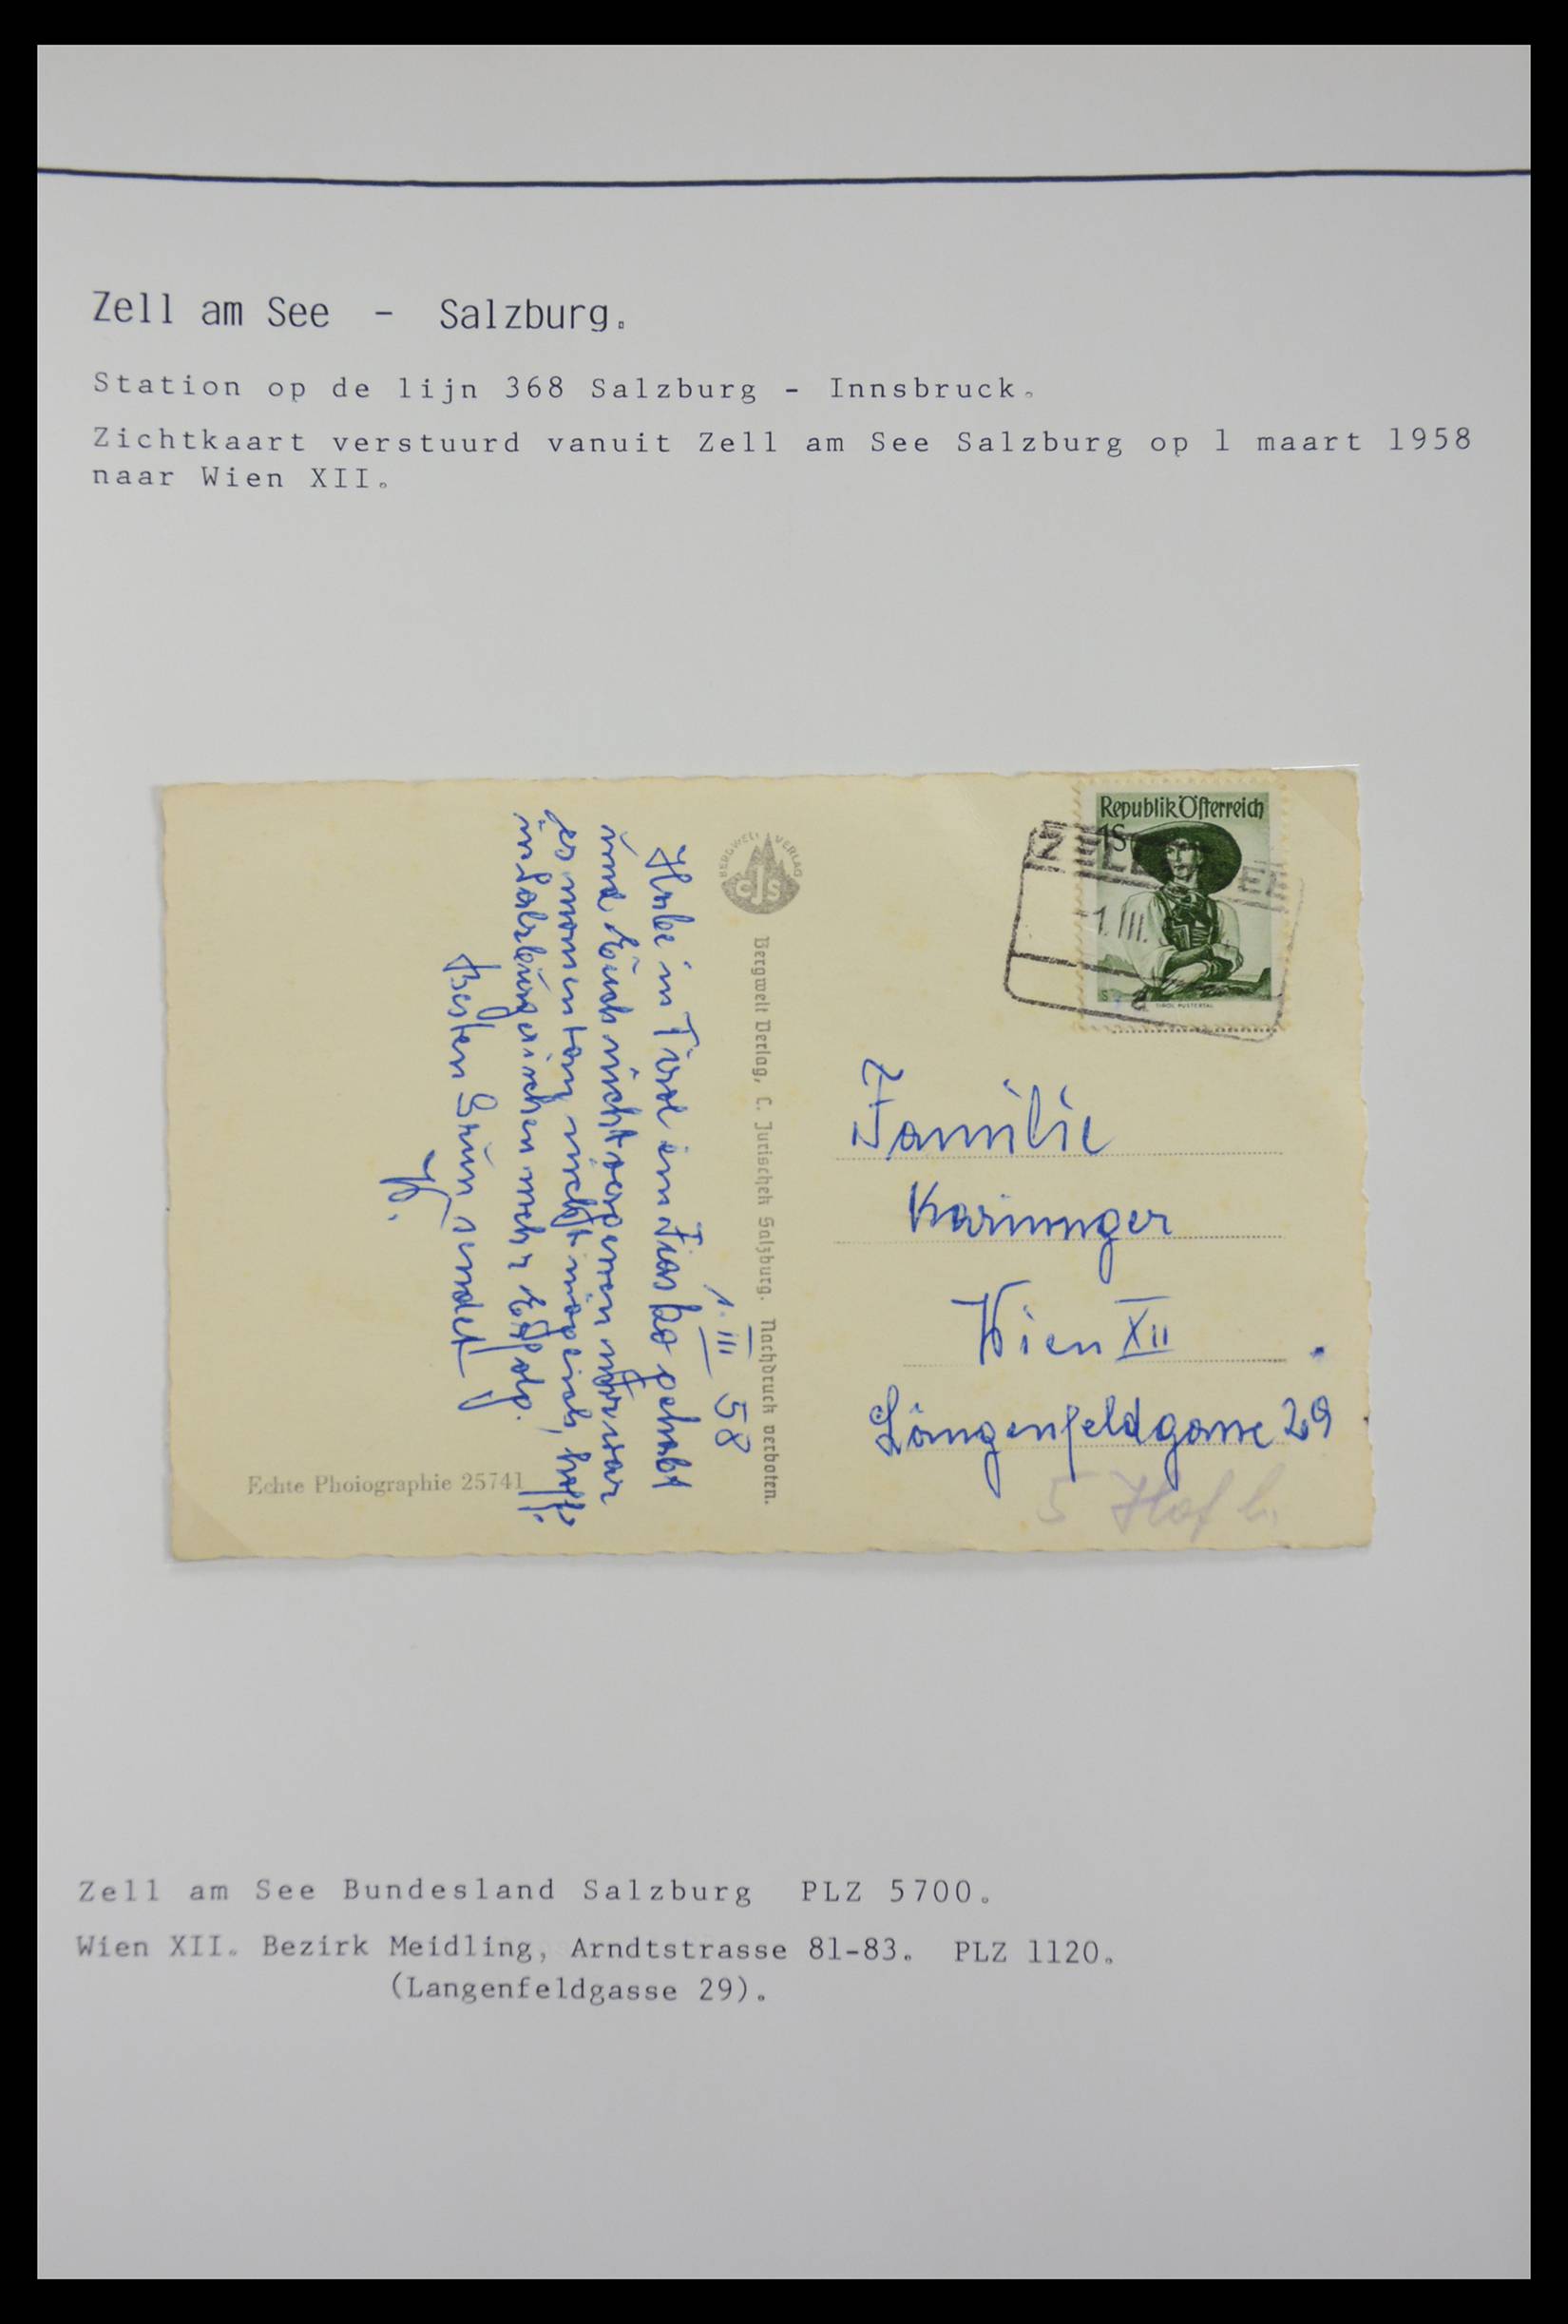 Zell am See - Salzburg.
Station op de lijn 368 Salzburg - Innsbruck.
Zichtkaart verstuurd vanuit Zell am See Salzburg op 1 maart 1958
naar Wien XII.
Republik Österreich
1S
ZELL
1. III.
TIROL PUSTERTAL
BERGWELT VERLAG
CJS
Bergwelt Verlag, C. Jurischek Salzburg. Nachdruck verboten.
1. III 58
Habe in Tirol ein Fiasko gehabt
und Euch nicht
es momentan nicht möglich, hoffe
in Salzburgischen mehr Erfolg.
Besten Gruss sendet
Echte Phoiographie 25741
Familie
Karninger
Wien XII
Längenfeldgasse 29
5 Hof
Zell am See Bundesland Salzburg PLZ 5700.
Wien XII. Bezirk Meidling, Arndtstrasse 81-83. PLZ 1120.
(Langenfeldgasse 29).